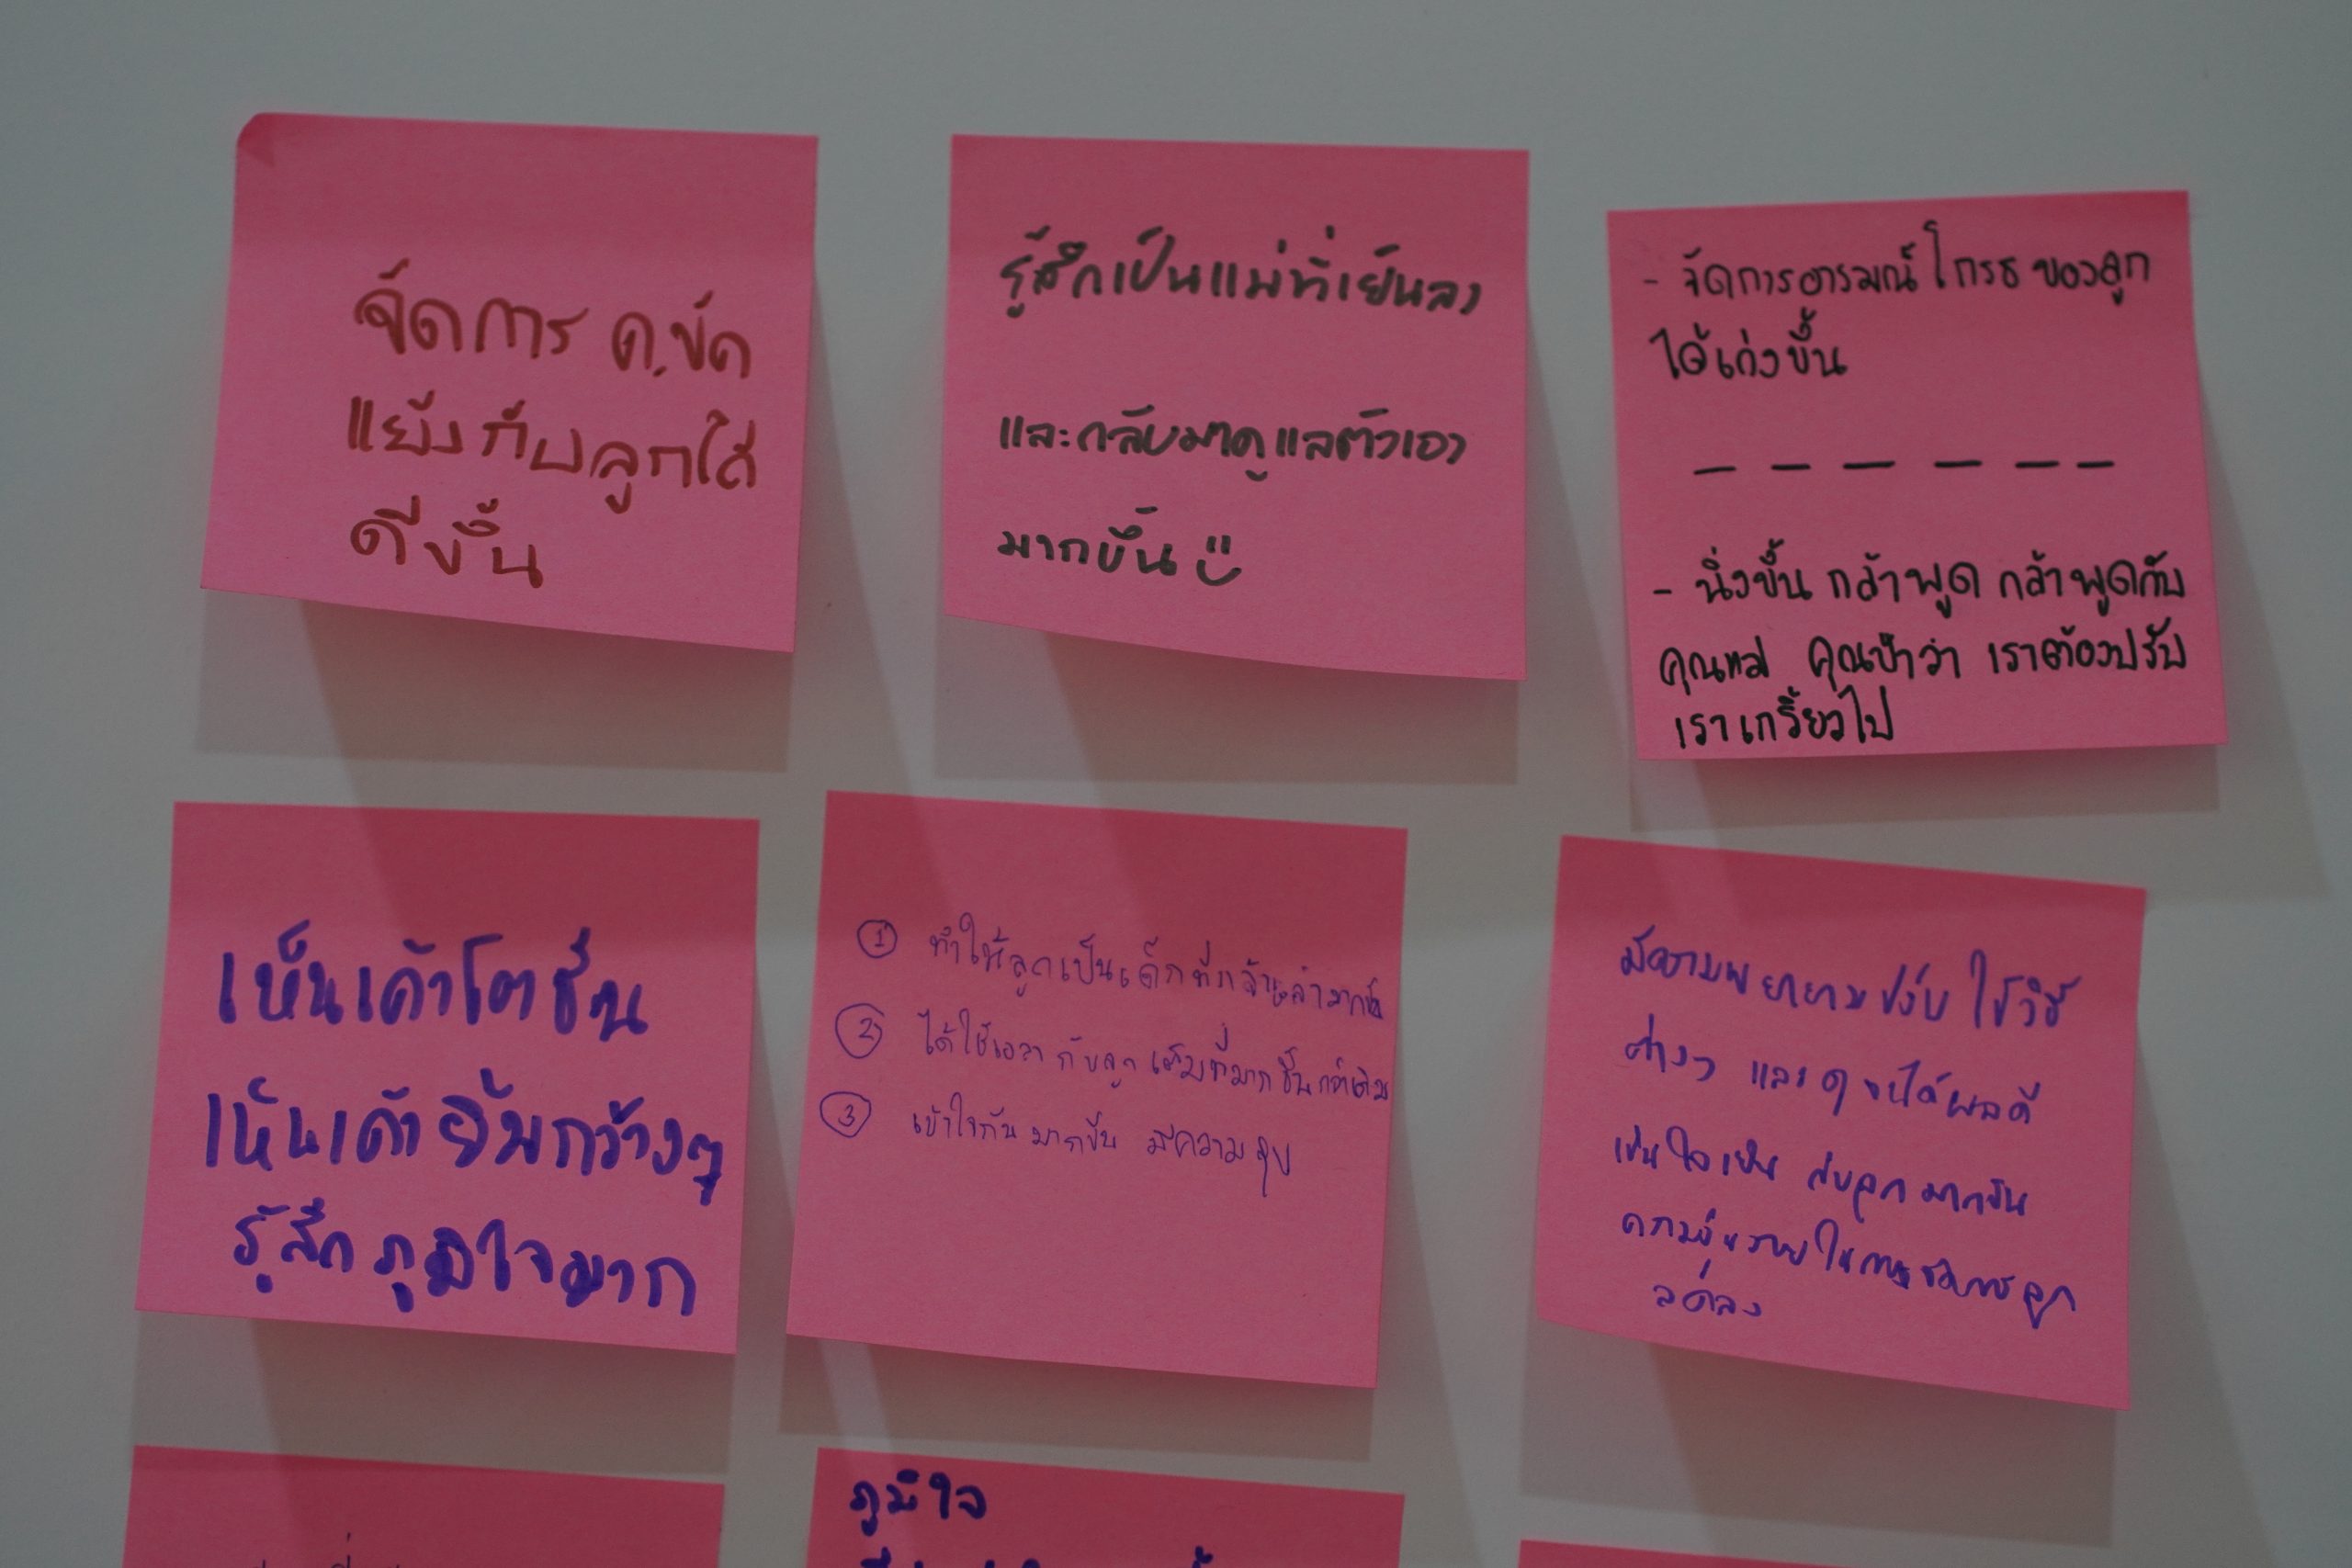 จัดการ ค.ขัด
แย้งกับลูกได้
ดีขึ้น
รู้สึกเป็นแม่ที่เย็นลง
และกลับมาดูแลตัวเอง
มากขึ้น
- จัดการอารมณ์โกรธของลูก
ได้เก่งขึ้น
- นิ่งขึ้น กล้าพูด กล้าพูดกับ
คุณแม่ คุณป๋าว่า เราต้องปรับ
เราเกรี้ยวไป
เห็นเค้าโตขึ้น
เห็นเค้ายิ้มกว้างๆ
รู้สึกภูมิใจมาก
① ทำให้ลูกเป็นเด็กที่กล้าเล่ามากขึ้น
② ได้ใช้เวลากับลูกเต็มที่มากขึ้นกว่าเดิม
③ เข้าใจกันมากขึ้น มีความสุข
มีความพยายามปรับ ใช้วิธี
ต่างๆ และดูจนได้ผลดี
เช่น ใจเย็น กับลูกมากขึ้น
ความวุ่นวายในการจัดการลูก
ลดลง
ภูมิใจ